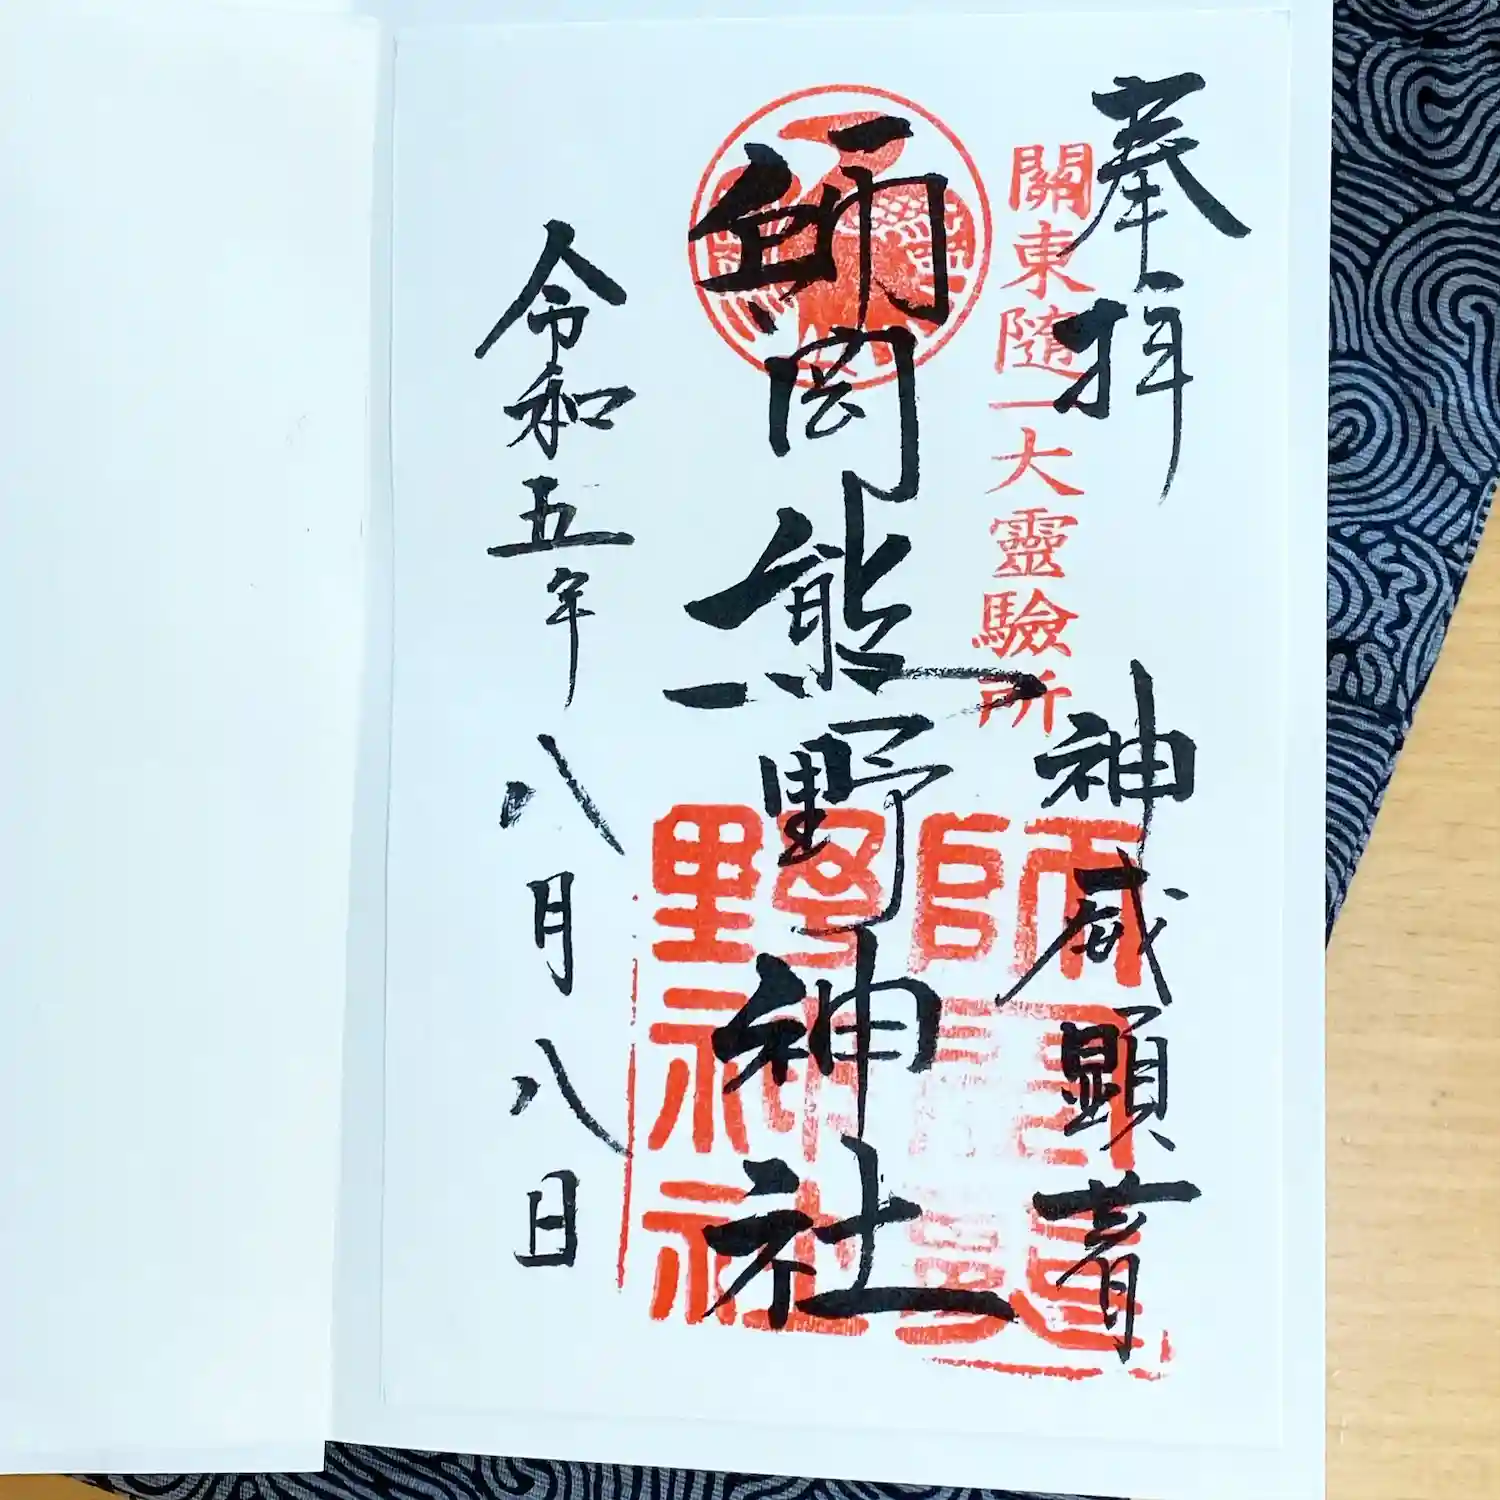 奉拝
關東隨一大靈驗所
神威顕著
師岡熊野神社
師岡熊
野神社
令和五年八月八日